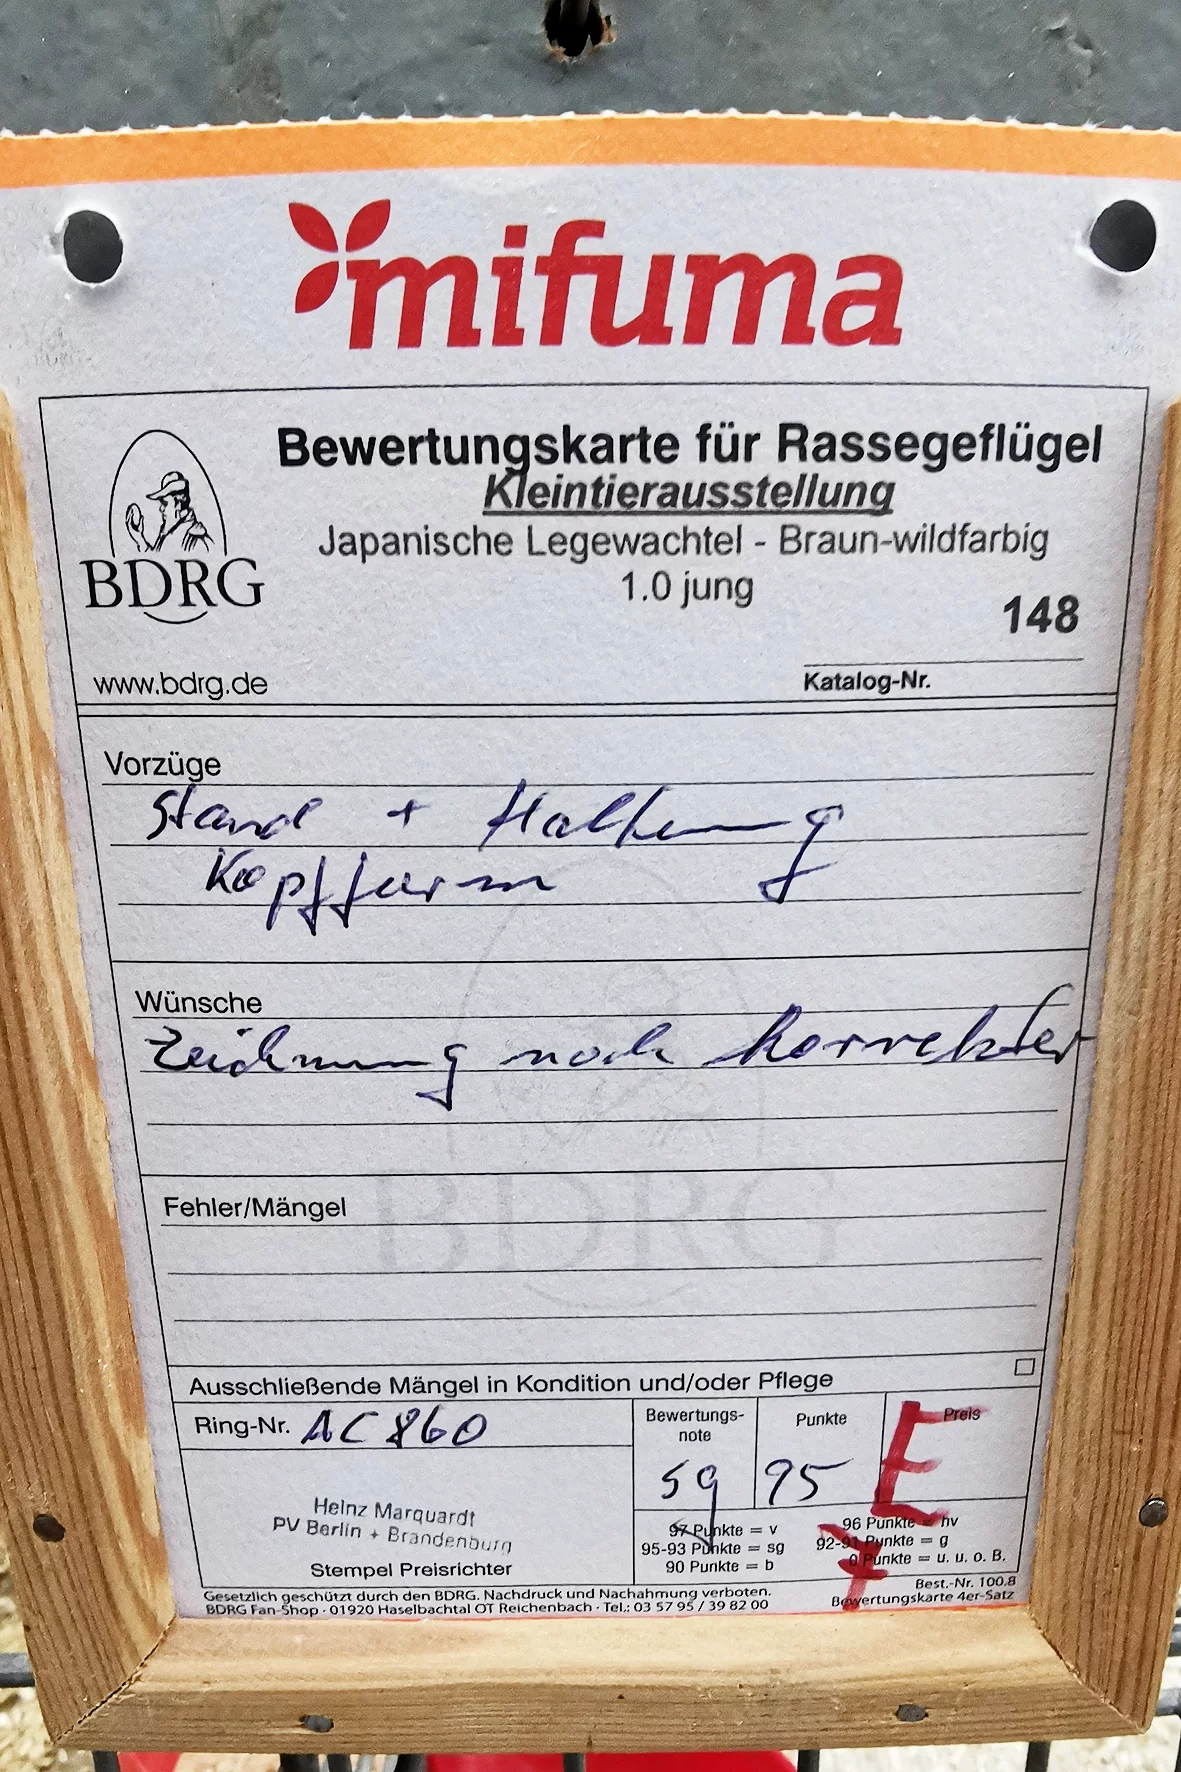 mifuma
Bewertungskarte für Rassegeflügel
Kleintierausstellung
Japanische Legewachtel - Braun-wildfarbig
1.0 jung
148
BDRG
www.bdrg.de
Katalog-Nr.
Vorzüge
Stand + Haltung
Kopfform
Wünsche
Zeichnung noch korrekter
Fehler/Mängel
BDRG
Ausschließende Mängel in Kondition und/oder Pflege
Ring-Nr. AC 860
Bewertungs-
note
Punkte
Preis
sg
95
E
7
Heinz Marquardt
PV Berlin + Brandenburg
Stempel Preisrichter
97 Punkte = v
96 Punkte = hv
95-93 Punkte = sg
92-91 Punkte = g
90 Punkte = b
0 Punkte = u. u. o. B.
Gesetzlich geschützt durch den BDRG. Nachdruck und Nachahmung verboten.
BDRG Fan-Shop · 01920 Haselbachtal OT Reichenbach · Tel.: 03 57 95 / 39 82 00
Best.-Nr. 100.8
Bewertungskarte 4er-Satz